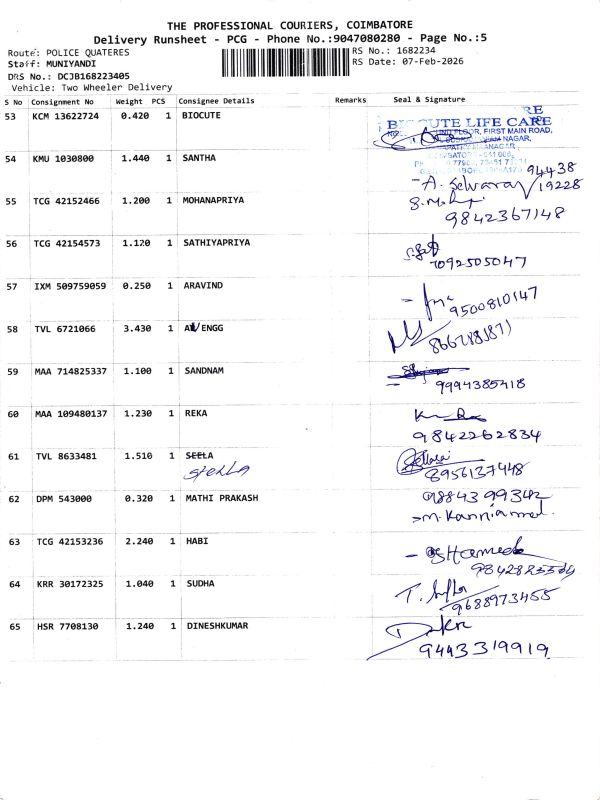 THE PROFESSIONAL COURIERS, COIMBATORE
Delivery Runsheet - PCG - Phone No.:9047080280 - Page No.:5
Route: POLICE QUATERES RS No.: 1682234
Staff: MUNIYANDI RS Date: 07-Feb-2026
DRS No.: DCJB168223405
Vehicle: Two Wheeler Delivery
S No Consignment No Weight PCS Consignee Details Remarks Seal & Signature
53 KCM 13622724 0.420 1 BIOCUTE
BIOCUTE LIFE CARE
FLOOR, FIRST MAIN ROAD,
NAGAR,
54 KMU 1030800 1.440 1 SANTHA
94438
A. Selvaraj 19228
55 TCG 42152466 1.200 1 MOHANAPRIYA
9842367148
56 TCG 42154573 1.120 1 SATHIYAPRIYA
7092505047
57 IXM 509759059 0.250 1 ARAVIND
9500810147
58 TVL 6721066 3.430 1 ENGG
59 MAA 714825337 1.100 1 SANDNAM
9994385418
60 MAA 109480137 1.230 1 REKA
9842262834
61 TVL 8633481 1.510 1 SEELA
stella
8956137448
62 DPM 543000 0.320 1 MATHI PRAKASH
9884399342
M. Kanniammal
63 TCG 42153236 2.240 1 HABI
64 KRR 30172325 1.040 1 SUDHA
9688973455
65 HSR 7708130 1.240 1 DINESHKUMAR
9443319919